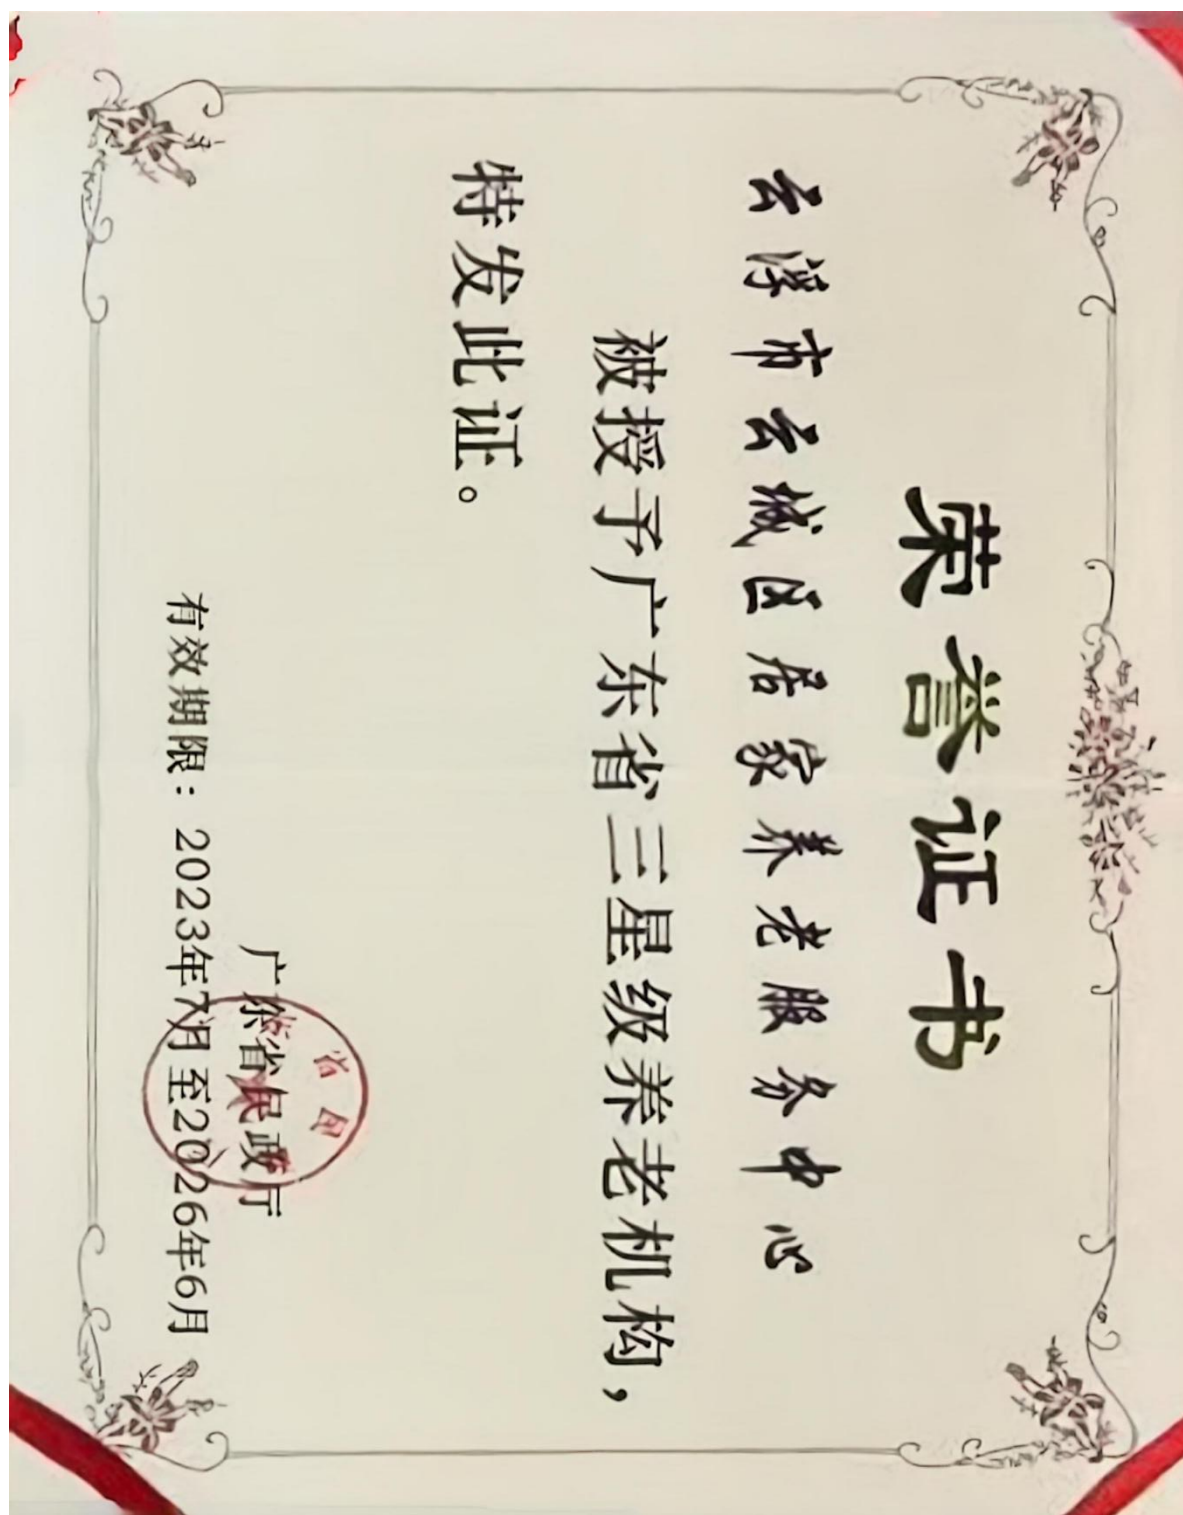 荣誉证书
云浮市云城区居家养老服务中心
被授予广东省三星级养老机构，
特发此证。
广东省民政厅
有效期限：2023年7月至2026年6月
省民